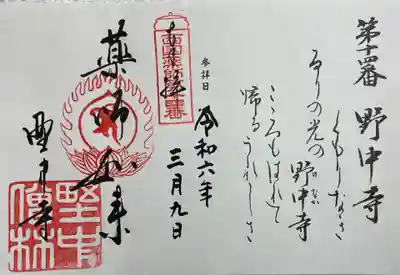 第十四番 野中寺
くもりなき
るりの光の野中寺
こころもはれて
帰るうれしさ
参拝日
令和六年
三月九日
奉拝
薬師如来
野中寺
野中僧林